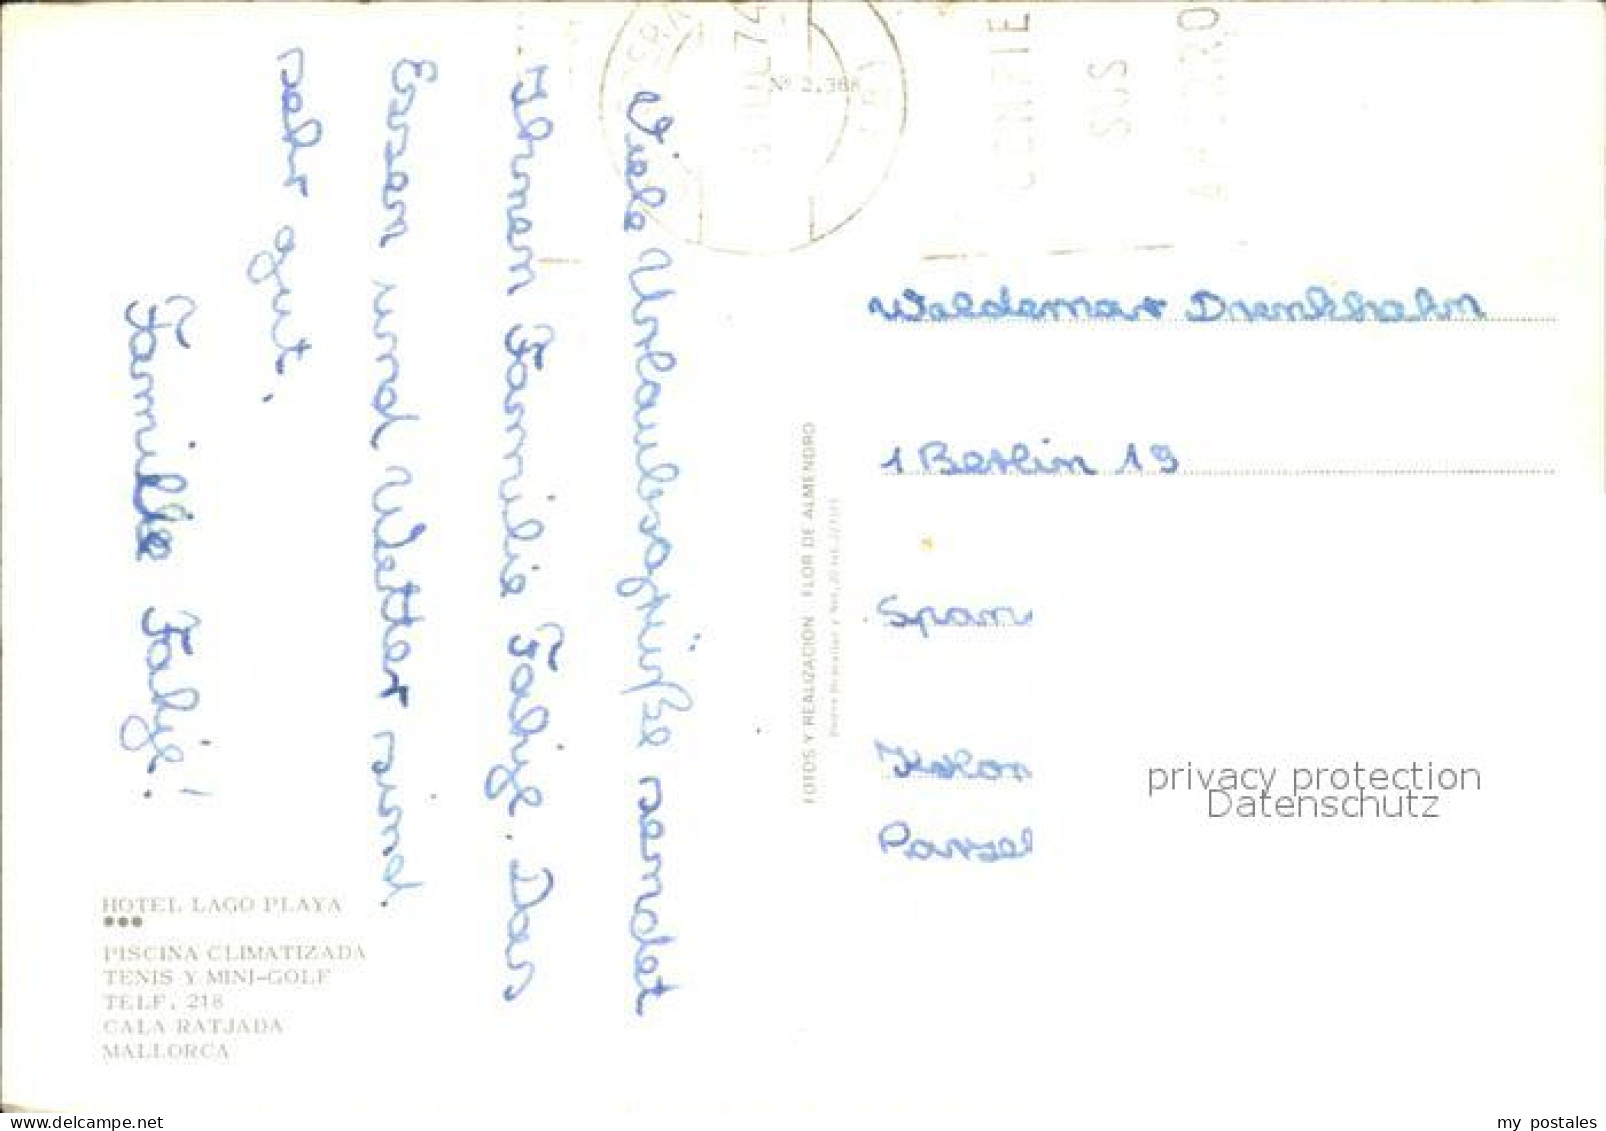 Viele Urlaubsgrüße sendet
Ihnen Familie Fahije. Das
Essen und Wetter sind
sehr gut.
Familie Fahije!
HOTEL LAGO PLAYA
●●●
PISCINA CLIMATIZADA
TENIS Y MINI-GOLF
TELF. 218
CALA RATJADA
MALLORCA
FOTOS Y REALIZACION: FLOR DE ALMENDRO
Nº 2.368
JUL 74
CONFIE
SUS
Waldemar Drenkhahn
1 Berlin 19
Span
Kolon
Parzel
privacy protection
Datenschutz
www.my-postales.com
my postales